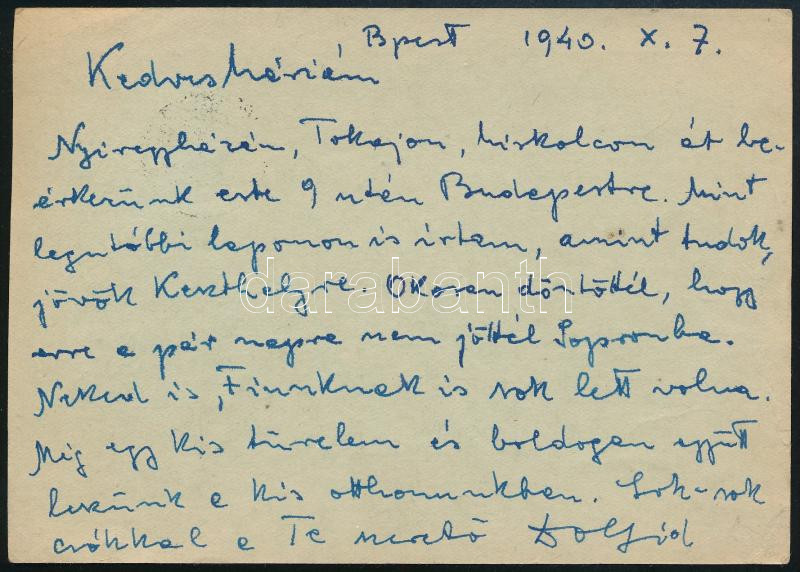 Bpest 1940. X. 7.
Kedves Máriám
Nyiregyházán, Tokajon, Miskolcon át be-
érkezünk este 9 után Budapestre. Mint
legutóbbi lapomon is írtam, amint tudok,
jövök Keszthelyre. Okosan döntöttél, hogy
erre a pár napra nem jöttél Sopronba.
Neked is, Finiknek is sok lett volna.
Még egy kis türelem és boldogan együtt
leszünk a kis otthonunkban. Sok-sok
csókkal a Te szerető Dolfid
darabanth